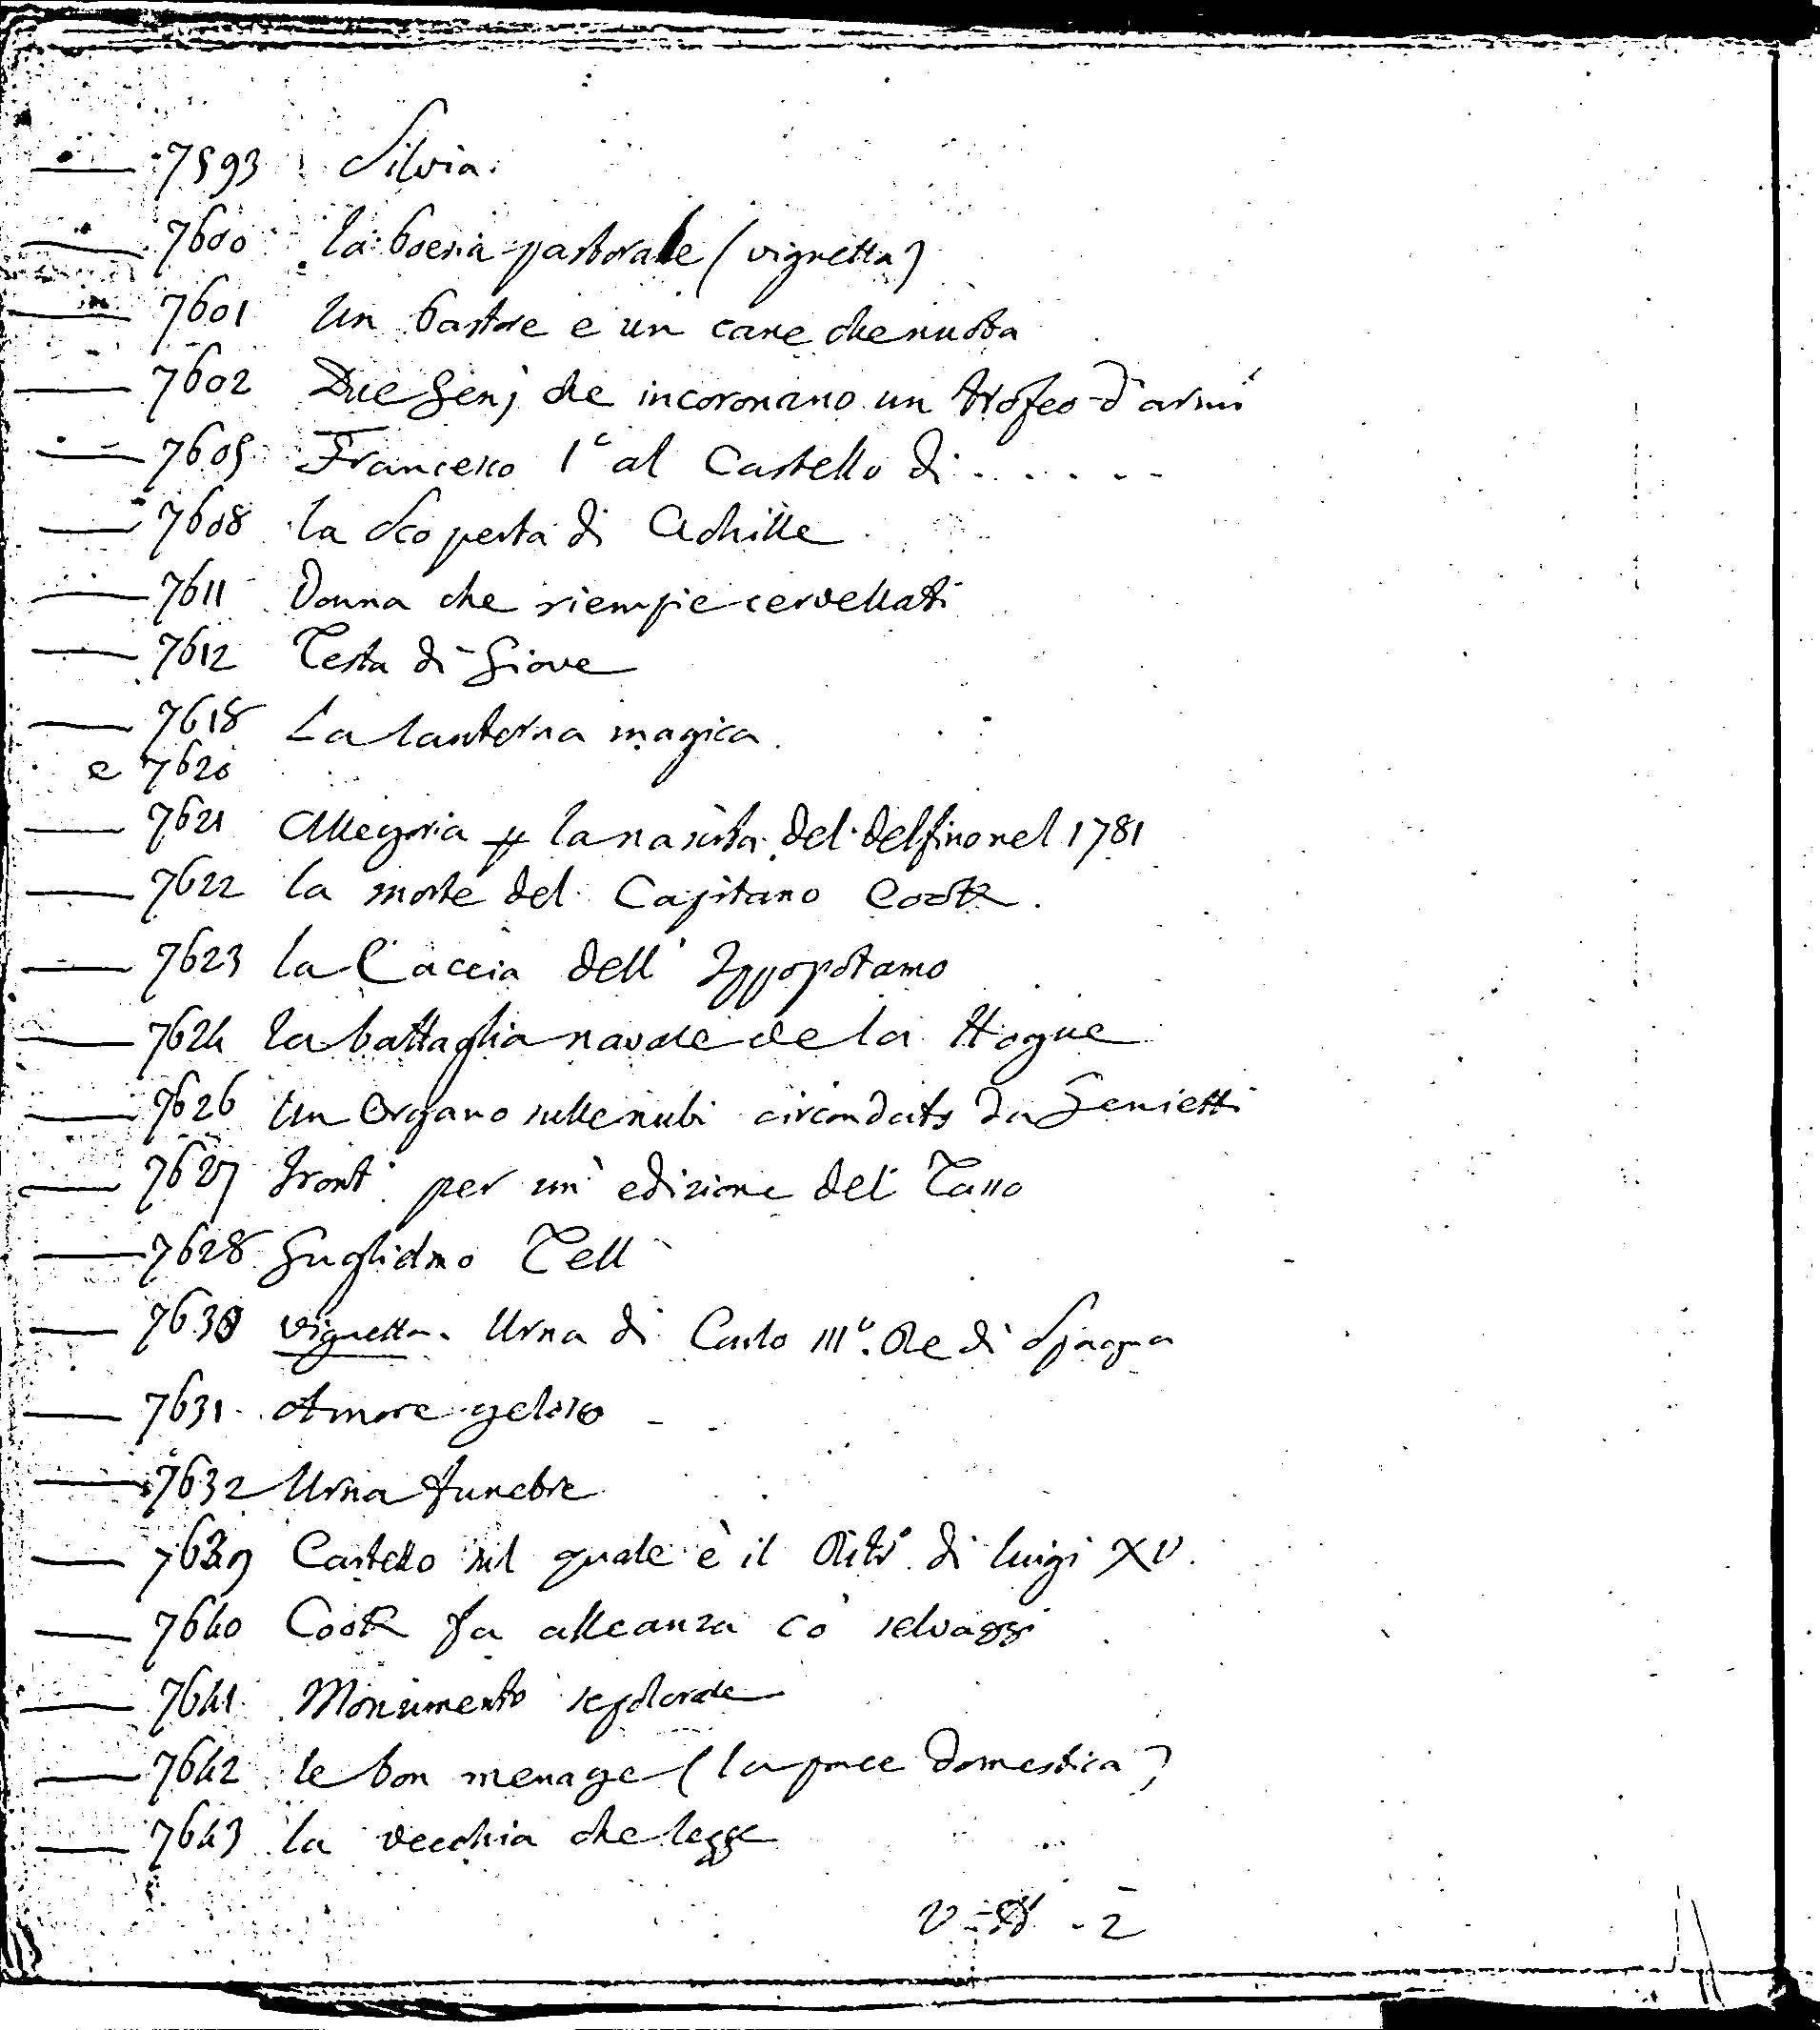 — 7593 Silvia.
— 7600 la Poesia pastorale (vignetta)
— 7601 Un Pastore e un cane che nuota
— 7602 Due Genj che incoronano un trofeo d'armi
— 7605 Francesco 1º al Castello di . . . . . .
— 7608 la Scoperta di Achille
— 7611 Donna che riempie cervellati
— 7612 Testa di Giove
— 7618 La lanterna magica.
e 7620
— 7621 Allegoria p la nascita del delfino nel 1781
— 7622 la morte del Capitano Cook.
— 7623 la Caccia dell' Ippopotamo
— 7624 la battaglia navale de la Hogue
— 7626 Un Organo sulle nubi circondato da Genietti
— 7627 front. per un' edizione del Tasso
— 7628 Guglielmo Tell
— 7630 vignetta. Urna di Carlo IIIº. Re di Spagna
— 7631 Amore geloso
— 7632 Urna funebre
— 7639 Castello sul quale è il Ritrº di luigi XV.
— 7640 Cook fa alleanza co' selvaggi
— 7641 Monumento sepolcrale
— 7642 le bon menage (la pace domestica)
— 7643 la vecchia che legge
2